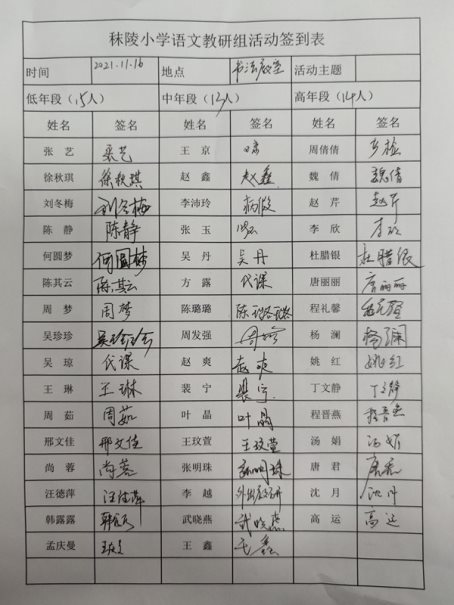 秣陵小学语文教研组活动签到表
时间 2021.11.16 地点 书法教室 活动主题
低年段（15人） 中年段（13人） 高年段（14人）
姓名 签名 姓名 签名 姓名 签名
张艺 张艺 王京 周倩倩
徐秋琪 徐秋琪 赵鑫 赵鑫 魏倩 魏倩
刘冬梅 刘冬梅 李沛玲 病假 赵芹 赵芹
陈静 陈静 张玉 李欣 李欣
何圆梦 何圆梦 吴丹 吴丹 杜腊银 杜腊银
陈其云 陈其云 方露 代课 唐丽丽 唐丽丽
周梦 周梦 陈璐璐 陈璐璐 程礼馨 程礼馨
吴珍珍 吴珍珍 周发强 杨澜 杨澜
吴琼 代课 赵爽 赵爽 姚红 姚红
王琳 王琳 裴宁 裴宁 丁文静 丁文静
周茹 周茹 叶晶 叶晶 程晋燕
邢文佳 邢文佳 王玟萱 王玟萱 汤娟 汤娟
尚蓉 尚蓉 张明珠 张明珠 唐君
汪德萍 汪德萍 李越 沈月 沈月
韩露露 武晓燕 武晓燕 高运 高运
孟庆曼 王鑫 王鑫